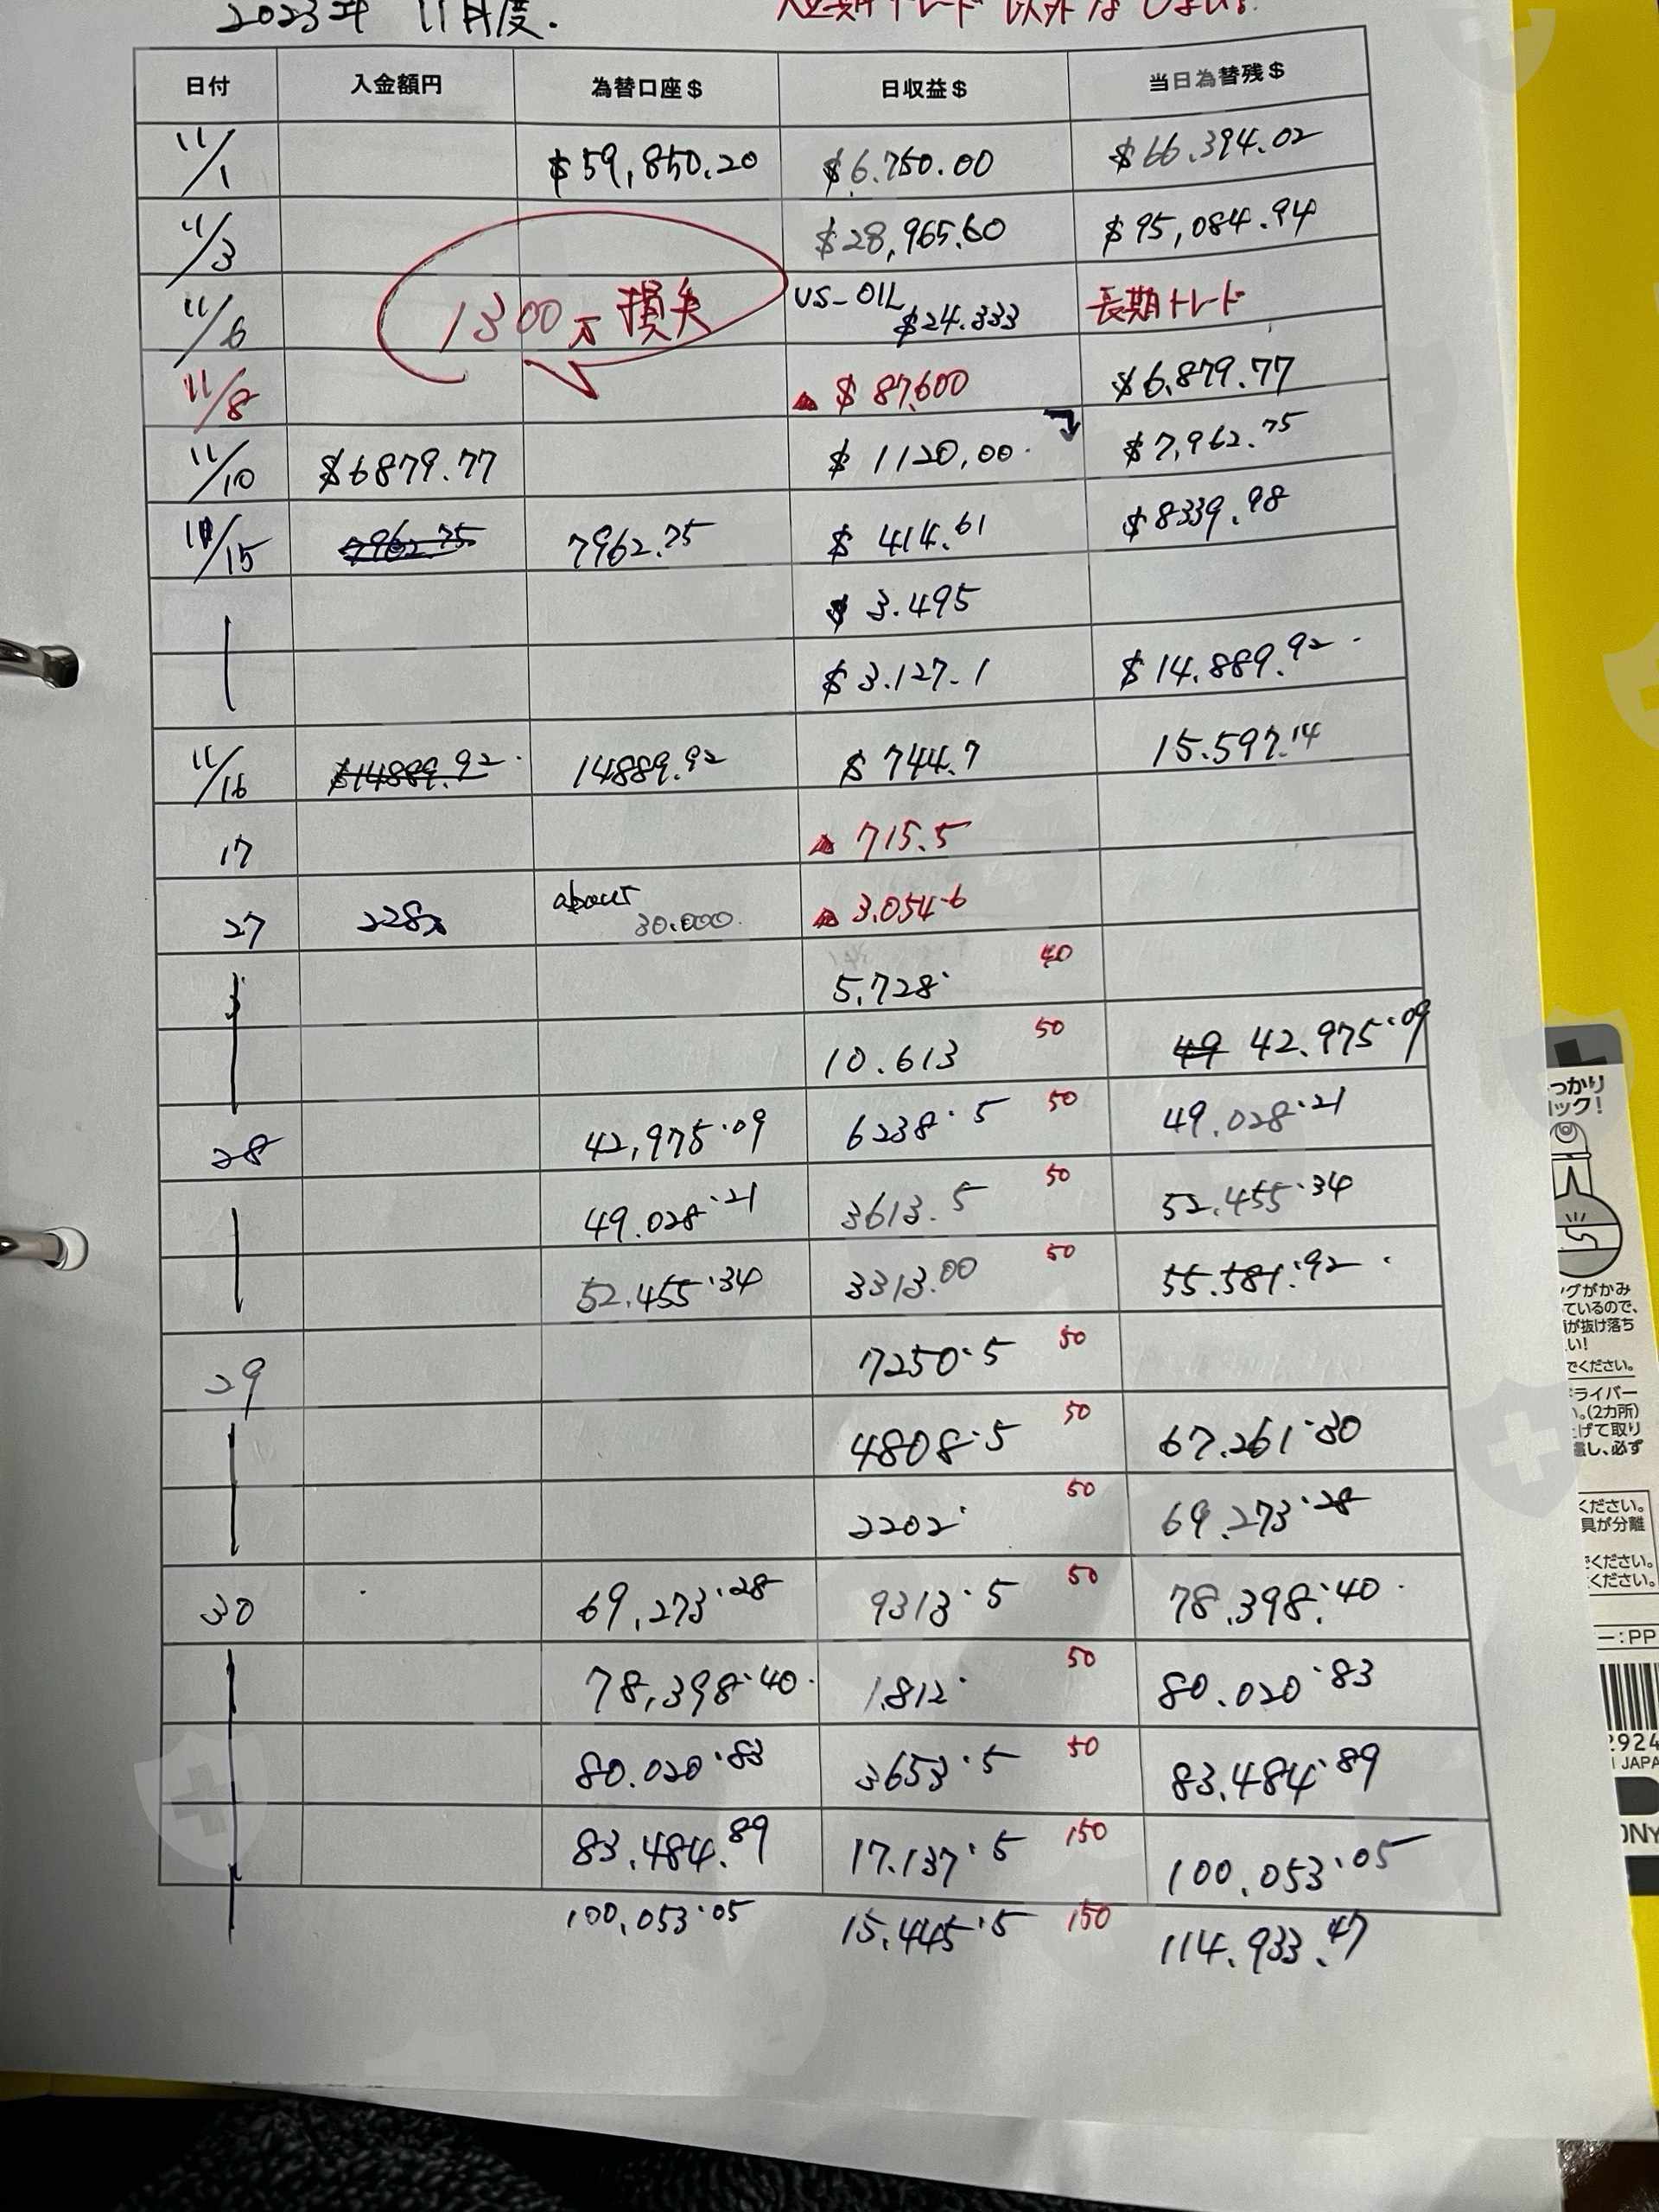 2023年 11月度.
トレード 以外
日付 入金額円 為替口座$ 日収益$ 当日為替残$
11/1 $59,850.20 $6.750.00 $66.394.02
11/3 $28,965.60 $95,084.94
11/6 US-OIL $24.333 長期トレード
1300万損失
11/8 ▲ $ 87,600 $6.879.77
11/10 $6879.77 $ 1120,00. $7,962.75
11/15 7962.75 7962.75 $ 414.61 $8339.98
$ 3.495
$ 3.127.1 $14.889.92.
11/16 $14889.92. 14889.92 $ 744.7 15.597.14
17 ▲ 715.5
27 about 30.000. ▲ 3.054.6
5,728. 40
10.613 50 49 42.975.09
28 42,975.09 6238.5 50 49.028.21
49.028.21 3613.5 50 52.455.34
52.455.34 3313.00 50 55.581.92.
29 7250.5 50
4808.5 50 67.261.30
2202. 50 69.273.28
30 69,273.28 9313.5 50 78.398.40.
78,398.40. 1.812. 50 80.020.83
80.020.83 3653.5 50 83.484.89
83.484.89 17.137.5 150 100,053.05
100,053.05 15.445.5 150 114.933.47
っかり
ック!
グがかみ
ているので、
が抜け落ち
い!
でください。
ライバー
。(2カ所)
げて取り
慮し、必ず
ください。
具が分離
ください。
ください。
ー:PP
2924
JAPA